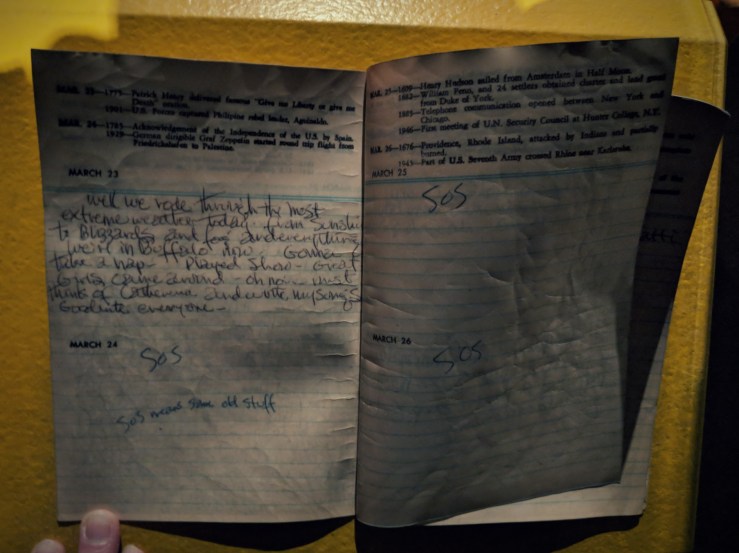 MAR. 23—1775—Patrick Henry delivered famous "Give me Liberty or give me
Death" oration.
1901—U.S. Forces captured Philippine rebel leader, Aguinaldo.
MAR. 24—1783—Acknowledgement of the Independence of the U.S. by Spain.
1929—German dirigible Graf Zeppelin started round trip flight from
Friedrichshafen to Palestine.
MARCH 23
well we rode through the most
extreme weather today from sunshine
to Blizzards and fog and everything
we're in Buffalo now - Gonna
take a nap - Played Show - Great
came around - oh now must
think of Catherine and write my songs
Goodnite everyone -
MARCH 24
SOS
SOS means same old stuff
MAR. 25—1609—Henry Hudson sailed from Amsterdam in Half Moon.
1682—William Penn, and 24 settlers obtained charter and land grant
from Duke of York.
1885—Telephone communication opened between New York and
Chicago.
1946—First meeting of U.N. Security Council at Hunter College, N.Y.
MAR. 26—1676—Providence, Rhode Island, attacked by Indians and partially
burned.
1945—Part of U.S. Seventh Army crossed Rhine near Karlsruhe.
MARCH 25
SOS
MARCH 26
SOS